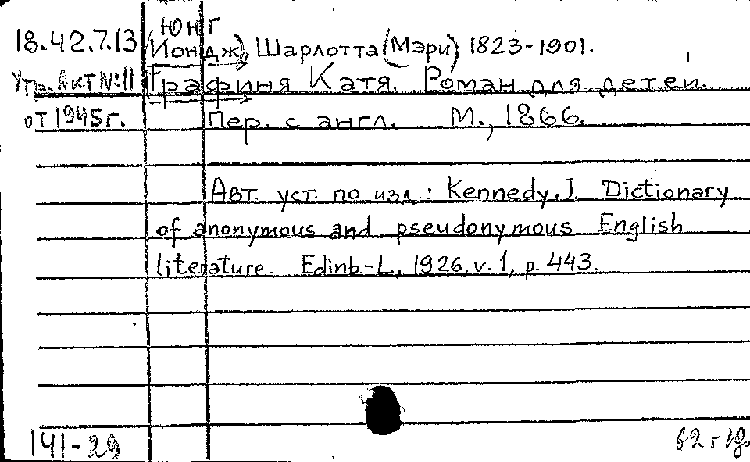 Юнг
18.42.7.13 (Йондж), Шарлотта (Мэри) 1823-1901.
Утр. Акт №11 Графиня Катя. Роман для детей.
от 1945 г. Пер. с англ. М., 1866.
Авт. уст. по изд.: Kennedy, J. Dictionary
of anonymous and pseudonymous English
literature. Edinb-L., 1926, v. 1, p. 443.
141-29